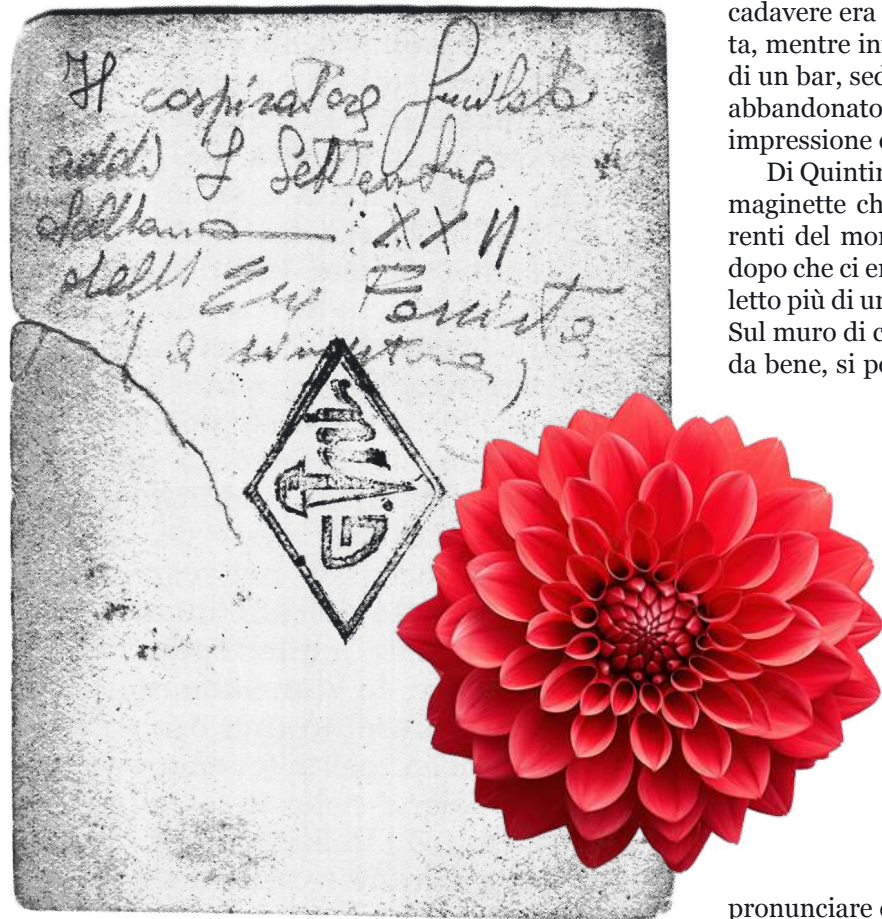 Il cospiratore fucilato
addì Settembre
dell'anno XXII
dell' Era Fascista
cadavere era
ta, mentre in
di un bar, sed
abbandonato
impressione
Di Quintin
maginette ch
renti del mon
dopo che ci er
letto più di un
Sul muro di c
da bene, si po
pronunciare